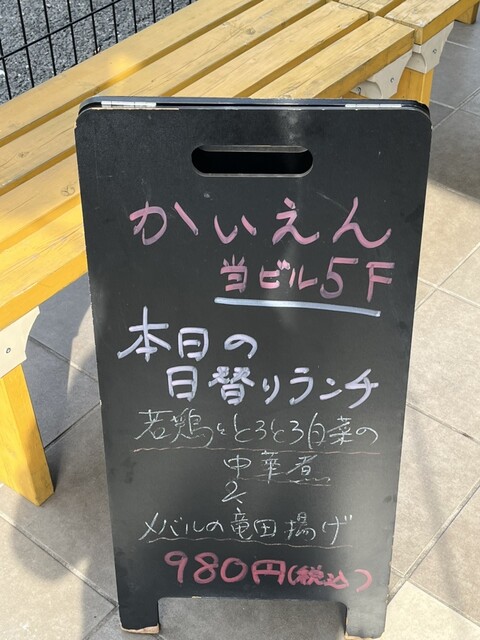 かいえん
当ビル5F
本日の
日替りランチ
若鶏ととろとろ白菜の
中華煮
&
メバルの竜田揚げ
980円(税込)